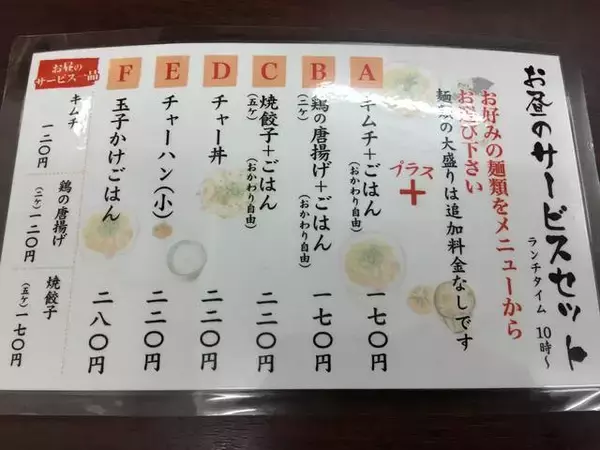 お昼のサービスセット
ランチタイム 10時〜
お好みの麺類をメニューから
お選び下さい
麺類の大盛りは追加料金なしです
プラス
+
A
キムチ+ごはん
(おかわり自由)
一七〇円
B
鶏の唐揚げ+ごはん
(二ケ)
(おかわり自由)
一七〇円
C
焼餃子+ごはん
(五ケ)
(おかわり自由)
二二〇円
D
チャー丼
二二〇円
E
チャーハン(小)
二二〇円
F
玉子かけごはん
二八〇円
お昼の
サービス一品
キムチ
一二〇円
鶏の唐揚げ
(二ケ)一二〇円
焼餃子
(五ケ)一七〇円